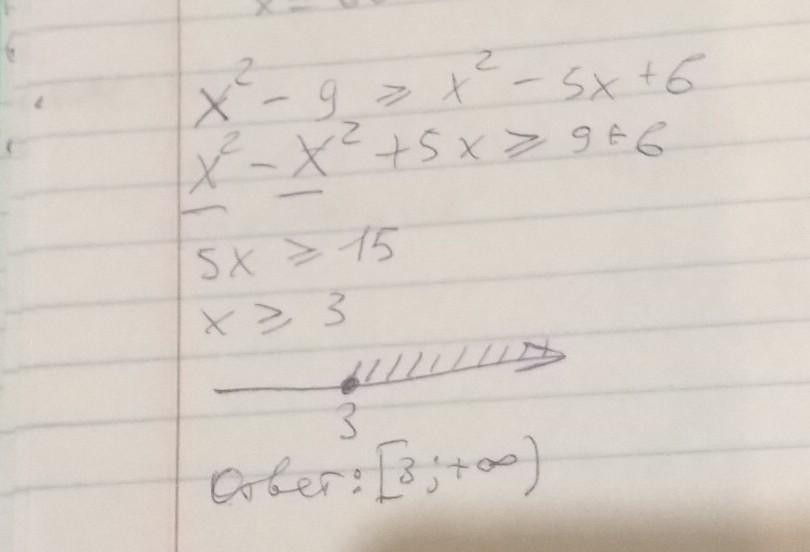 x² - 9 ≥ x² - 5x + 6
x² - x² + 5x ≥ 9 + 6
5x ≥ 15
x ≥ 3
3
Ответ: [3; +∞)